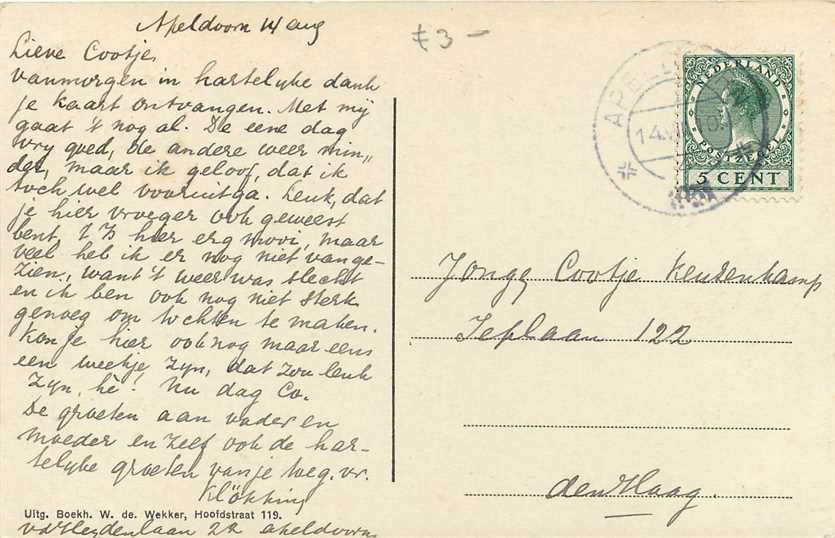 Apeldoorn 14 aug
Lieve Cootje,
vanmorgen in hartelyke dank
je kaart ontvangen. Met mij
gaat 't nog al. De eene dag
vry goed, de andere weer min„
der, maar ik geloof, dat ik
toch wel vooruitga. Leuk, dat
je hier vroeger ook geweest
bent, 't Is hier erg mooi, maar
veel heb ik er nog niet van ge-
zien, want 't weer was slecht
en ik ben ook nog niet sterk
genoeg om tochten te maken.
Kon je hier ook nog maar eens
een weekje zyn, dat zou leuk
zyn, hè! Nu dag Co.
De groeten aan vader en
moeder en zelf ook de har-
telyke groeten van je toeg. vr.
Klökking
Uitg. Boekh. W. de Wekker, Hoofdstraat 119.
vd Heydenlaan 22 apeldoorn
£3 -
APELD
14.VIII
NEDERLAND
POSTZEGEL
5 CENT
Jonge Cootje Keukenkamp
Ieplaan 122
den Haag.